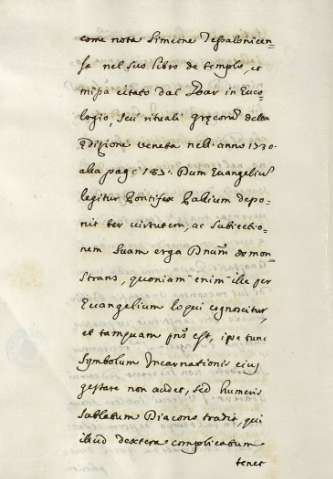 come nota Simeone Tessalonicen-
se nel suo libro de templo, et
missa citato dal Goar in Euco-
logio, seu rituali gręcorũ della
Edizione veneta nell'anno 1730.
alla pag: 183. Dum Evangelius
legitur Pontifex Pallium depo-
nit ter virtutem, ac Subiectio-
nem suam erga Dnũm demon-
strans, quoniam enim ille per
Evangelium loqui cognoscitur,
et tamquam pñs est, ipse tunc
symbolum Incarnationis eius
gestare non audet, sed humeris
sublatum Diacono tradit, qui
illud dextera complicatum
tenet